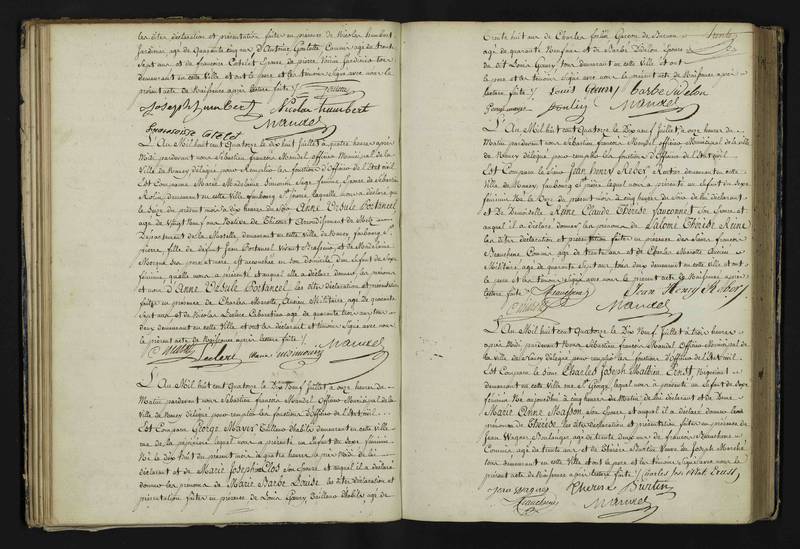 les dites déclaration et présentation faites en présence de Nicolas humbert
Jardinier, agé de Quarante cinq ans d'Antoine agé de trente
Sept ans et de françoise Epouse de pierre Jardinier tous
demeurant en cette Ville et ont le pere et les témoins Signé avec nous le
présent acte de Naissance après lecture faite /.
Joseph humbert Nicolas humbert
Mandel
francoise
L'An Mil huit cent Quatorze le Dix huit Juillet à quatre heures après
Midi pardevant nous Sébastien françois Mandel Officier Municipal de la
Ville de Nancy délégué pour Remplir les fonctions d'Officier de l'Etat Civil
Est Comparue Marie Magdelaine Simonin Sage femme, Epouse de Sébastien
demeurant en cette Ville faubourg St pierre, laquelle nous a déclaré que
le Seize du présent mois à dix heures du Soir Anne Ursule Portancel
agée de Vingt Neuf ans, Native de Arrondissement de Metz
Département de la Moselle, demeurant en cette Ville de Nancy faubourg St
pierre, fille de défunt Jean Portancel Vivant et de Magdelaine
ses pere et mere, Est accouchée en son domicile d'un Enfant du Sexe
féminin, qu'elle nous a présenté et auquel elle a déclaré donner les prénoms
et nom d'Anne Ursule Portancel, les dites déclaration et présentation
faites en présence de Charles Ancien Militaire, agé de quarante
Sept ans et de Nicolas Leclerc agé de quarante trois ans tous
deux demeurant en cette Ville et ont les déclarant et témoins Signé avec nous
le présent acte de Naissance après lecture faite /.
Leclerc Mandel
L'An Mil huit cent Quatorze le Dix Neuf Juillet à onze heures du
Matin pardevant nous Sébastien françois Mandel Officier Municipal de la
Ville de Nancy Délégué pour remplir les fonctions d'Officier de l'Etat Civil
Est Comparu George Mayer Tailleur d'habits demeurant en cette Ville
rue de la pépinière lequel nous a présenté un Enfant du Sexe féminin
Né le dix huit du présent mois à quatre heures après Midi de lui
déclarant et de Marie Joseph Clos Son Epouse et auquel il a déclaré
donner les prénoms de Marie Barbe Louise, les dites déclaration et
présentation faites en présence de Louis Tailleur d'habits, agé de
trente huit ans de Charles Garçon de
agé de quarante Neuf ans et de Barbe Didelon Epouse
du dit Louis tous demeurant en cette Ville et ont
le pere et les témoins Signé avec nous le présent acte de Naissance après
lecture faite /. Louis Barbe Didelon
Mandel
L'An Mil huit cent Quatorze le Dix neuf Juillet à onze heures du
Matin pardevant nous Sébastien françois Mandel Officier Municipal de la ville
de Nancy délégué pour remplir les fonctions d'Officier de l'Etat Civil
Est Comparu le Sieur Jean Henry Reber Rentier demeurant en cette
Ville de Nancy faubourg St pierre, lequel nous a présenté un Enfant du Sexe
féminin Né le Seize du présent mois à cinq heures du Soir de lui déclarant
et de Demoiselle Reine Claude Thérèse Son Epouse et
auquel il a déclaré donner les prénoms de Salomé Thérèse Reine
les dites déclaration et présentation faites en présence des Sieurs françois
Beauchêne Commis agé de trente ans et de Charles Ancien
Militaire agé de quarante Sept ans, tous deux demeurant en cette Ville et ont
le pere et les témoins Signé avec nous le présent acte de Naissance après
lecture faite /. Beauchene Jean Henry Reber
Mandel
L'An Mil huit cent Quatorze le Dix Neuf Juillet à trois heures
après Midi pardevant nous Sébastien françois Mandel Officier Municipal de
la Ville de Nancy délégué pour remplir les fonctions d'Officier de l'Etat Civil
Est Comparu le Sieur Charles Joseph Mathieu Ernst Négociant
demeurant en cette Ville rue St George, lequel nous a présenté un Enfant du Sexe
féminin Né aujourd'hui à cinq heures du Matin de lui déclarant et de Dame
Marie Anne Masson Son Epouse et auquel il a déclaré donner le
prénom de Thérèse, les dites déclaration et présentation faites en présence de
Jean Wagner Boulanger, agé de trente deux ans de françois Beauchêne
Commis agé de trente ans et de Thérèse Veuve de Joseph
tous demeurant en cette Ville et ont le pere et les témoins Signé avec nous le
présent acte de Naissance après lecture faite /. Charles Jos Mat Ernst
Jean Wagner
Beauchene Mandel